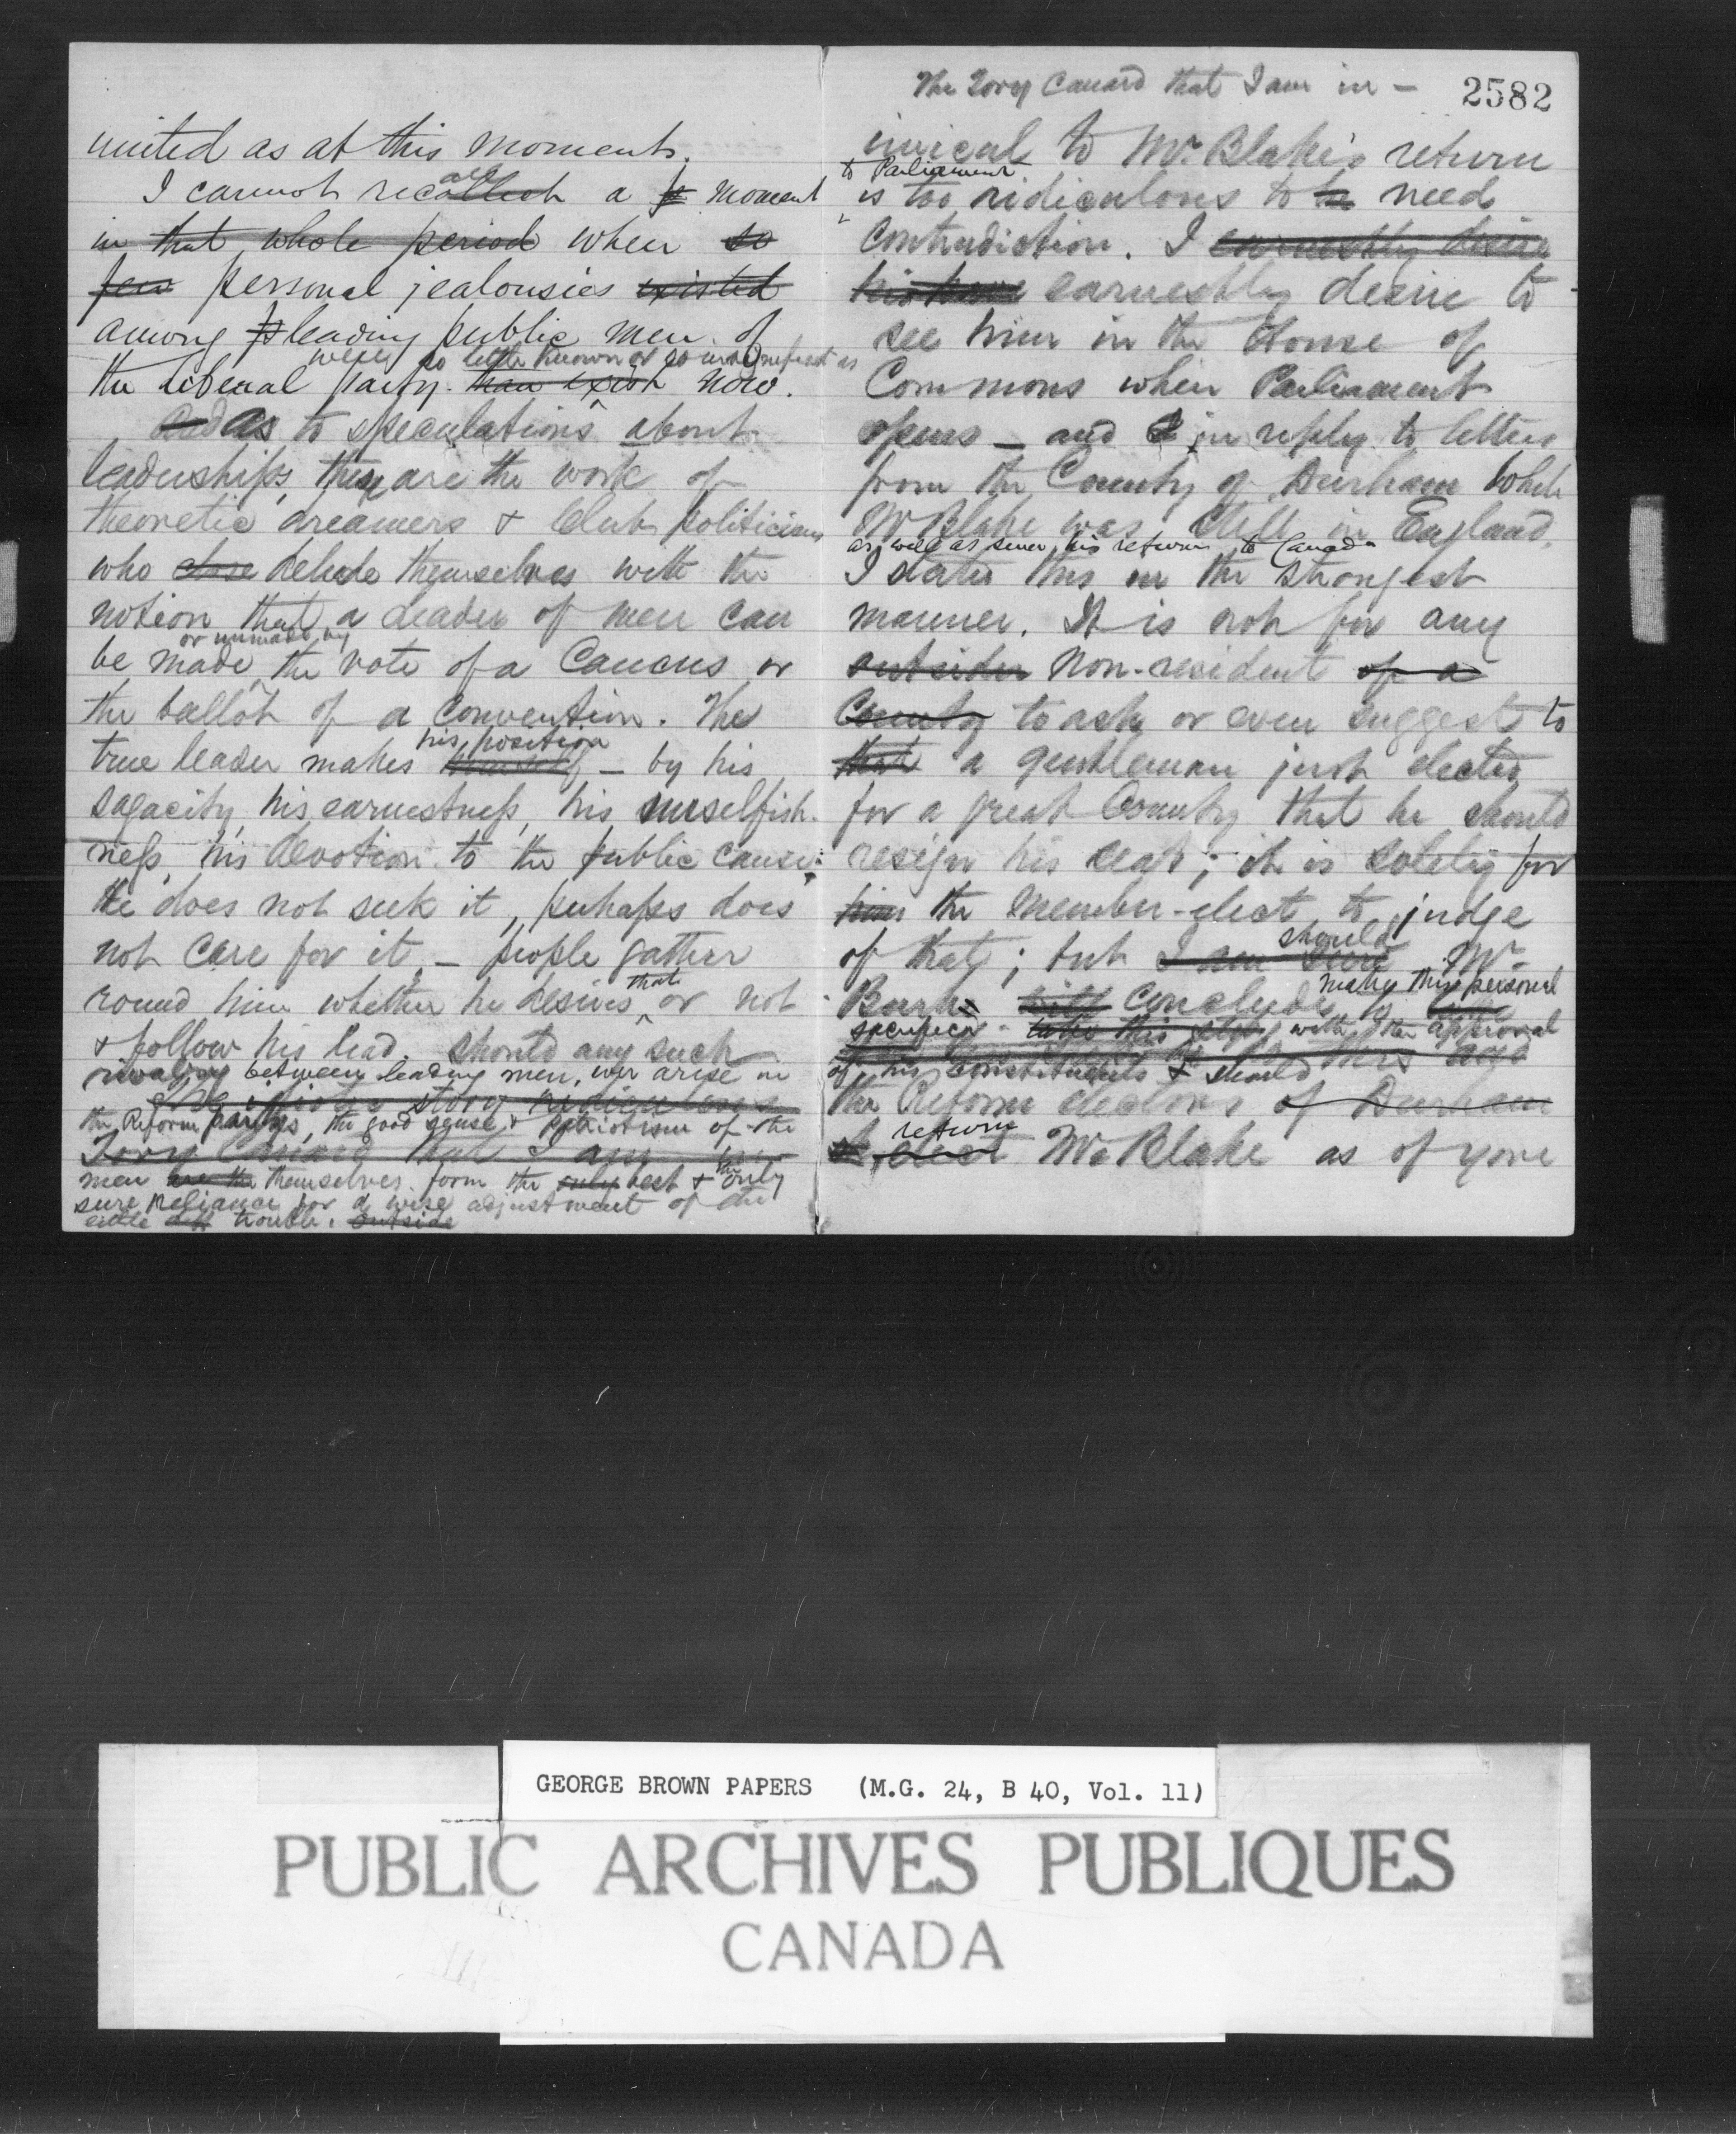 united as at this moment.
I cannot recollect all a fe moment
in that whole period when so
few personal jealousies existed
among leading public men of
were so little known or so manifest as
the Liberal party than exist now.
And As to speculations about
leaderships, they are the work of
theoretic dreamers & Club politicians
who delude themselves with the
notion that a leader of men can
or unmade by
be made the vote of a Caucus or
the ballot of a Convention. The
his position
true leader makes himself – by his
sagacity, his earnestness, his unselfish-
ness, his devotion to the public cause:
He does not seek it, perhaps does
not care for it – people gather
that
round him whether he desires or not
& follow his lead. Should any such
rivalry between leading men, ever arise in
story ridiculous
the Reform party, the good sense & patriotism of the
Tory Canard that I am
men are the themselves form the only best & the only
sure reliance for a wise adjustment of the
little diff trouble. outside
The Tory Canard that I am in –
2582
inimical to Mr. Blake's return
to Parliament
is too ridiculous to be need
contradiction. I earnestly desire
his earnestly desire to
see him in the House of
Commons when Parliament
opens – and I in reply to letters
from the County of Durham while
Mr Blake was still in England,
as well as since his return to Canada
I stated this in the strongest
manner. It is not for any
outsider Non-resident of a
County to ask or even suggest to
that a gentleman just elected
for a great County that he should
resign his seat; it is solely for
him the Member-elect to judge
should
of that; but I am sure Mr
make this personal
Burk will conclude to
sacrifice – take this step with the approval
of his constituents & should this
the Reform electors of Durham
return
elect Mr Blake as of yore
GEORGE BROWN PAPERS (M.G. 24, B 40, Vol. 11)
PUBLIC ARCHIVES PUBLIQUES
CANADA